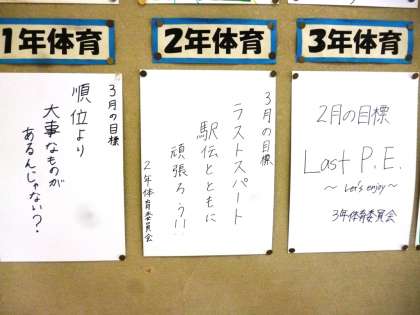 1年体育
3月の目標
順位より
大事なものが
あるんじゃない?
2年体育
3月の目標
ラストスパート
駅伝とともに
頑張ろう!!
2年体育委員会
3年体育
2月の目標
Last P.E.
～ Let's enjoy ～
3年体育委員会